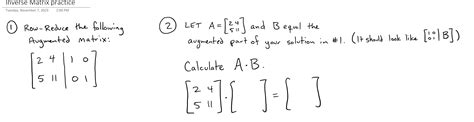 Inverse Matrix practice
Tuesday, November 7, 2023 2:00 PM
① Row-Reduce the following
Augmented matrix:
[2 4 | 1 0
5 11 | 0 1]
② LET A=[2 4
5 11] and B equal the
augmented part of your solution in #1. (It should look like [1 0
0 1 | B])
Calculate A·B.
[2 4
5 11] · [ ] = [ ]